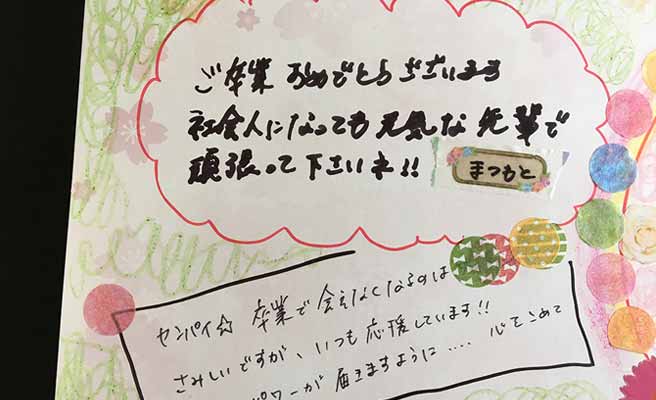 ご卒業おめでとうございます
社会人になっても元気な先輩で
頑張って下さいね!!
まつもと
センパイ☆ 卒業で会えなくなるのは
さみしいですが、いつも応援しています!!
パワーが届きますように.... 心をこめて